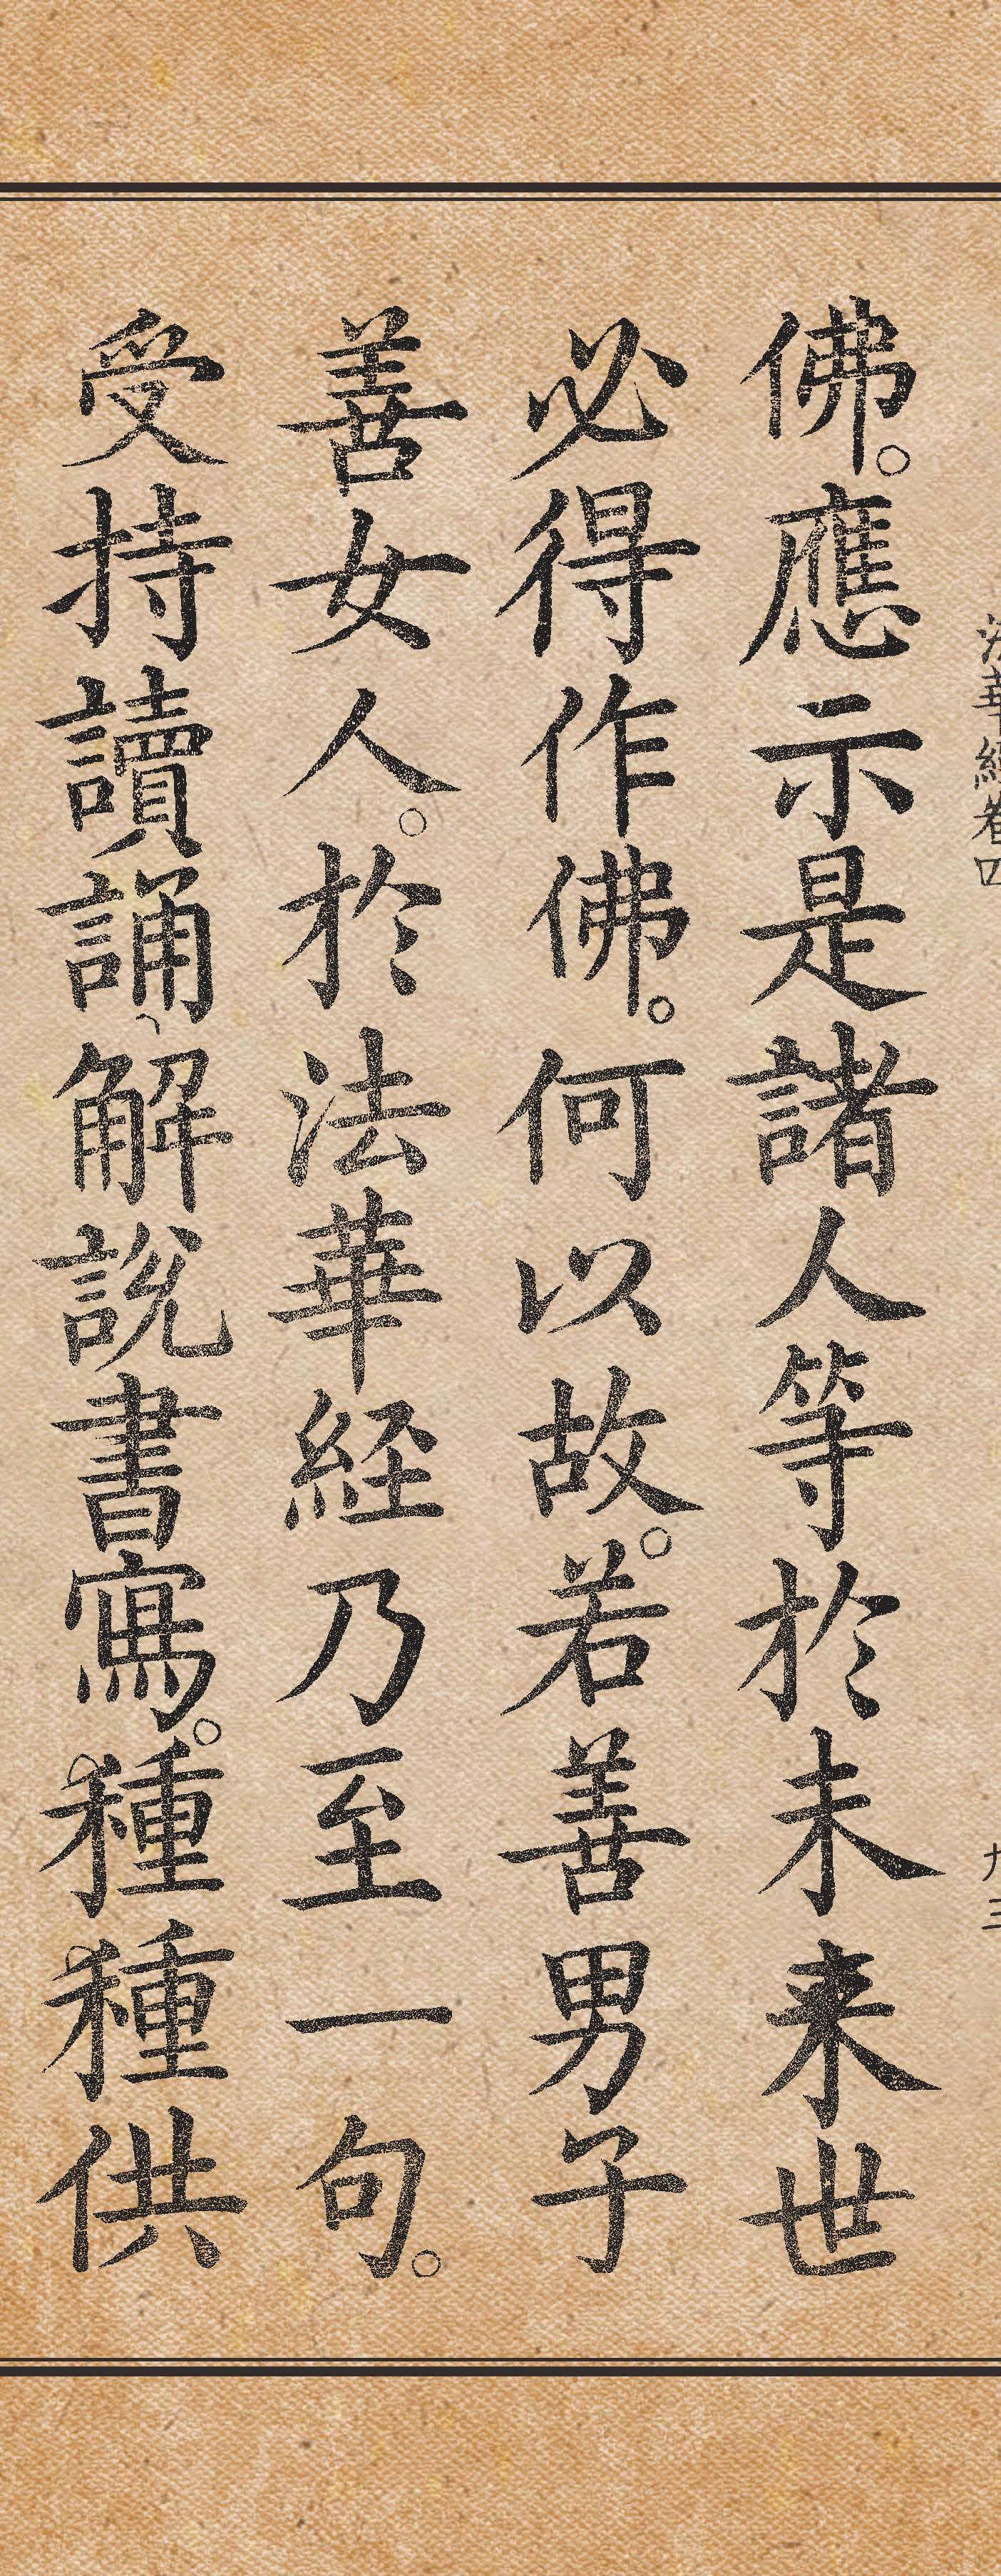 法華經卷四 九三
佛。應示是諸人等於未来世
必得作佛。何以故。若善男子
善女人。於法華経乃至一句。
受持讀誦、解說書寫。種種供